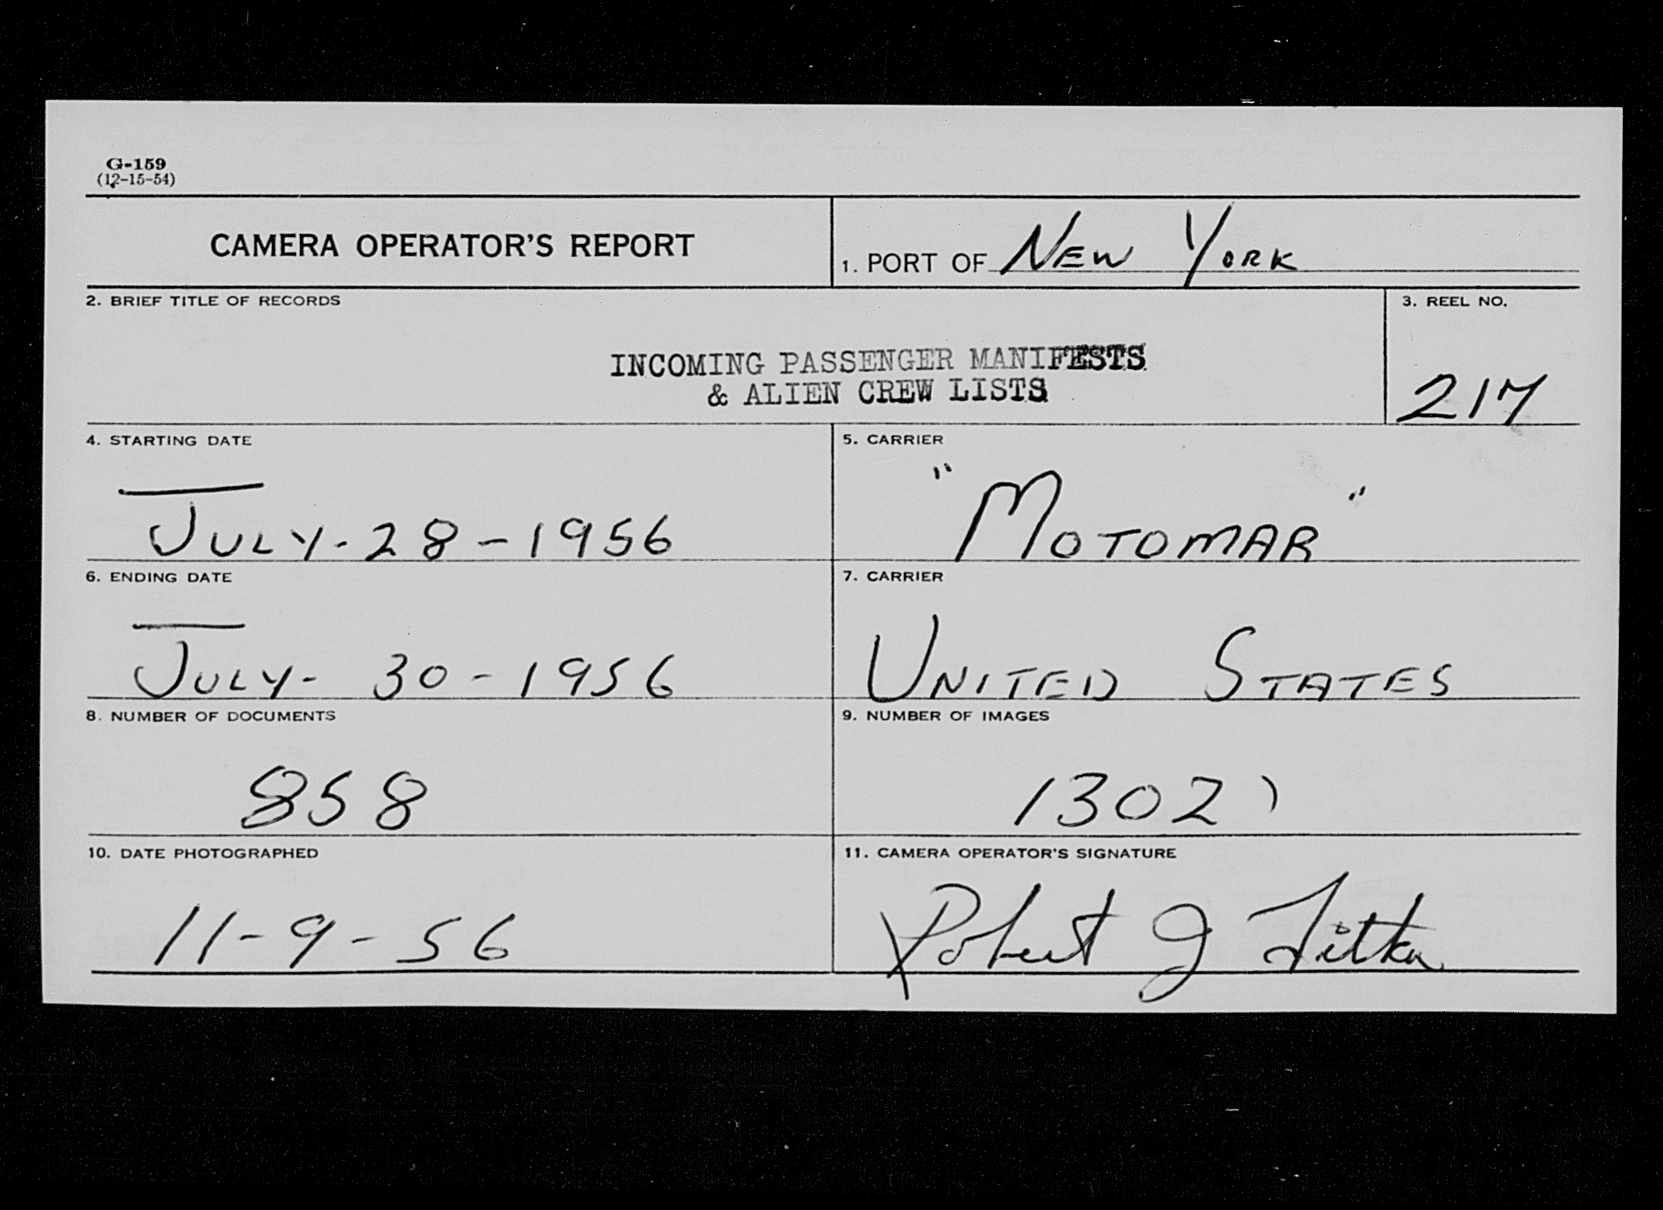 G-159
(12-15-54)
CAMERA OPERATOR'S REPORT
1. PORT OF NEW YORK
2. BRIEF TITLE OF RECORDS
INCOMING PASSENGER MANIFESTS
& ALIEN CREW LISTS
3. REEL NO.
217
4. STARTING DATE
JULY-28-1956
5. CARRIER
"MOTOMAR"
6. ENDING DATE
JULY-30-1956
7. CARRIER
UNITED STATES
8. NUMBER OF DOCUMENTS
858
9. NUMBER OF IMAGES
1302
10. DATE PHOTOGRAPHED
11-9-56
11. CAMERA OPERATOR'S SIGNATURE
Robert J